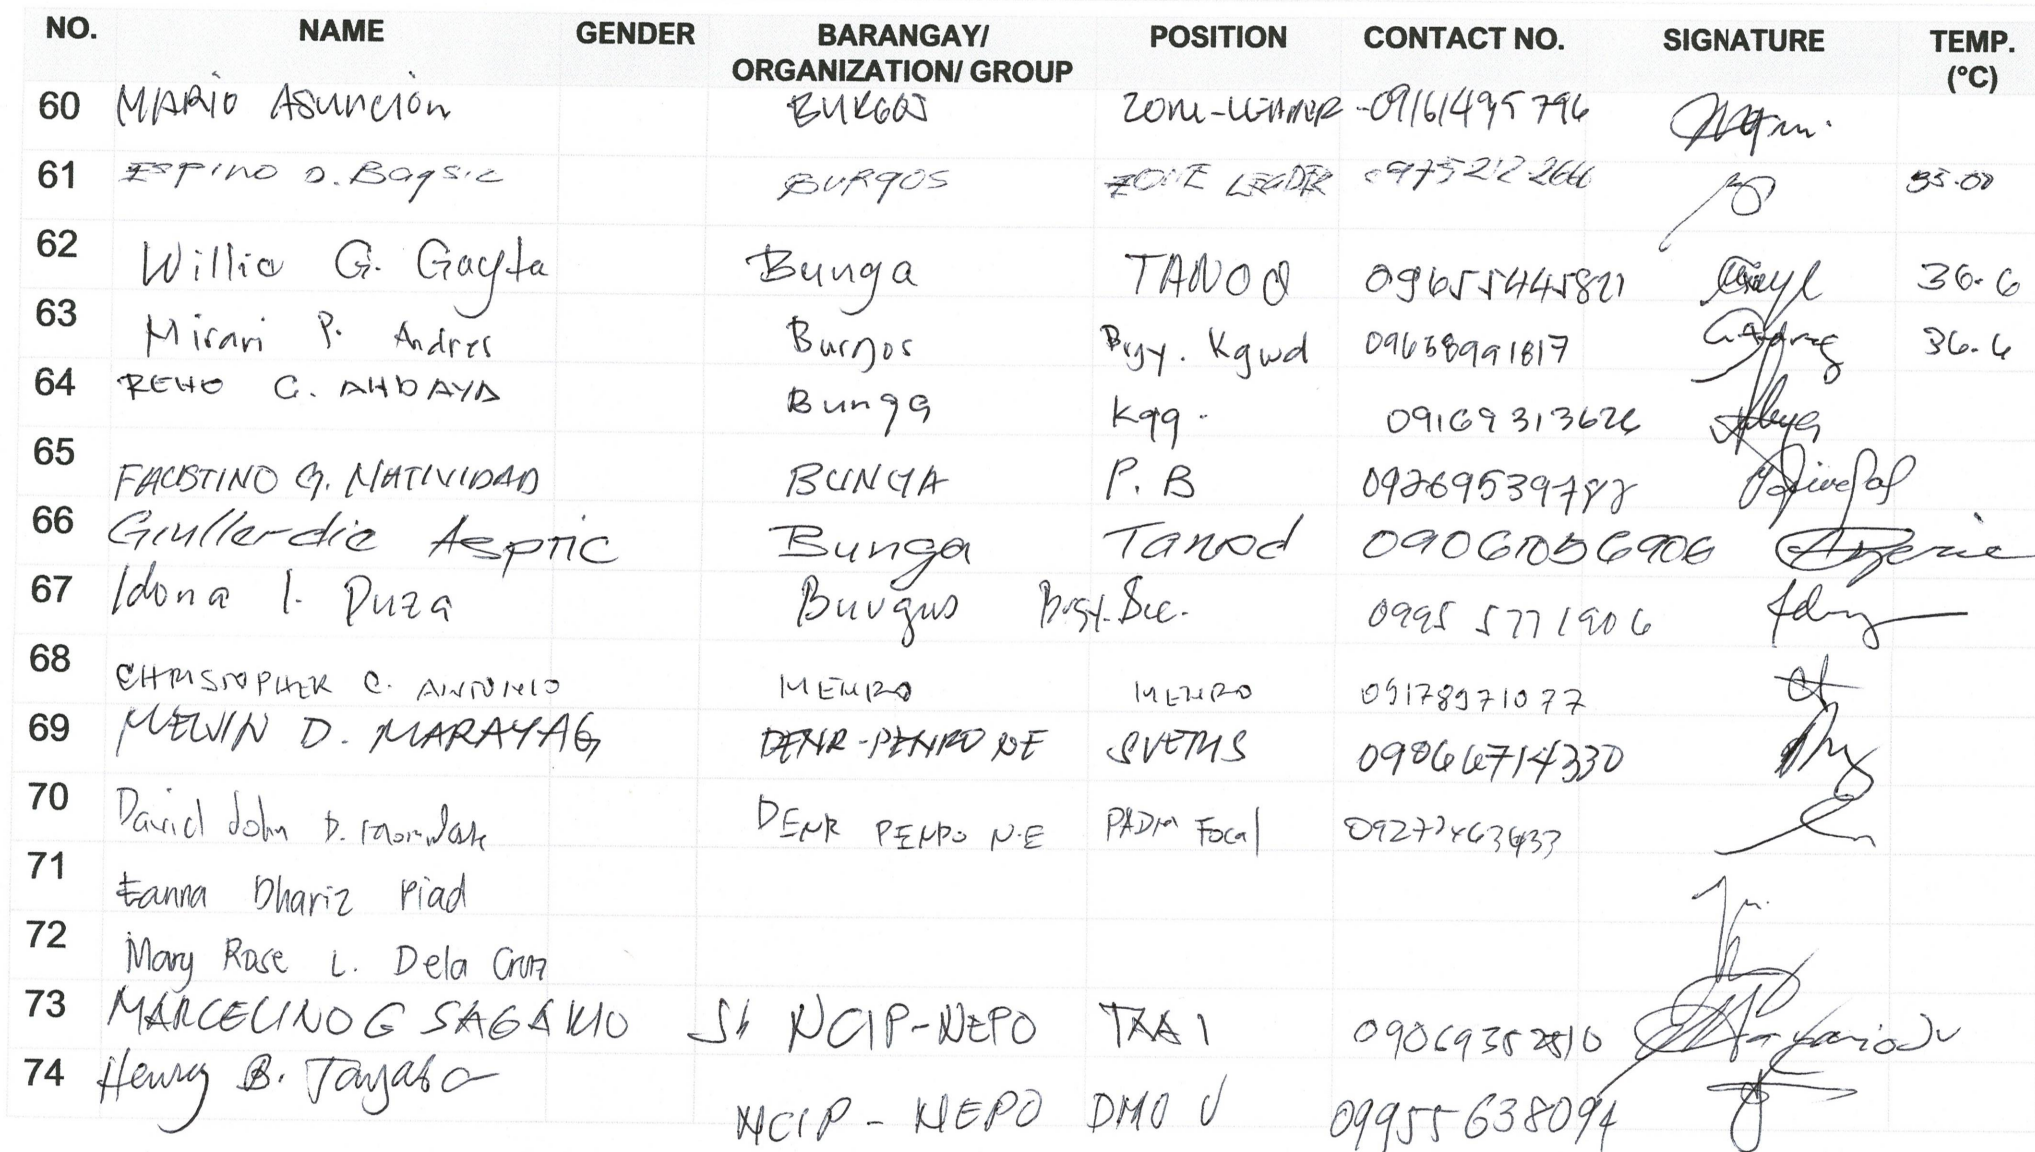 NO. NAME GENDER BARANGAY/ ORGANIZATION/ GROUP POSITION CONTACT NO. SIGNATURE TEMP. (°C)
60 MARIO Asunción BURGOS ZONE-LEADER -09161495796
61 ESPINO D. Bagsic BURGOS ZONE LEADER 09752122666 35.00
62 Willie G. Gayta Bunga TANOD 09655445821 36.6
63 Mirari P. Andres Burgos Brgy. Kgwd 09658991817 36.6
64 RENO C. ANDAYA Bunga Kgg. 09169313626
65 FAUSTINO G. NATIVIDAD BUNGA P.B 09269539782
66 Bunga Tanod
67 Idona I. Duza Burgos Brgy. Sec. 0995 5771906
68 CHRISTOPHER C. ANTONIO MENRO MENRO 09178971077
69 MELVIN D. MARAYAG DENR-PENRO NE SVEMS 09066714330
70 David John D. DENR PENRO N.E PADM Focal
71 Eanna Dhariz Piad
72 Mary Rose L. Dela Cruz
73 MARCELINO G SAGANIO Sh NCIP-NEPO TAA I
74 Henry B. Tayaba NCIP - NEPO DMO V 09955638094